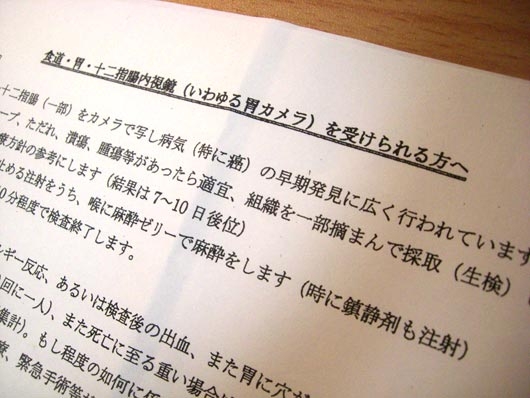 食道・胃・十二指腸内視鏡（いわゆる胃カメラ）を受けられる方へ
十二指腸（一部）をカメラで写し病気（特に癌）の早期発見に広く行われています
ープ、ただれ、潰瘍、腫瘍等があったら適宜、組織を一部摘まんで採取（生検）
療方針の参考にします（結果は7～10日後位）
止める注射をうち、喉に麻酔ゼリーで麻酔をします（時に鎮静剤も注射）
0分程度で検査終了します。
ルギー反応、あるいは検査後の出血、また胃に穴が
回に一人）、また死亡に至る重い場合は
集計）。もし程度の如何に
緊急手術等が